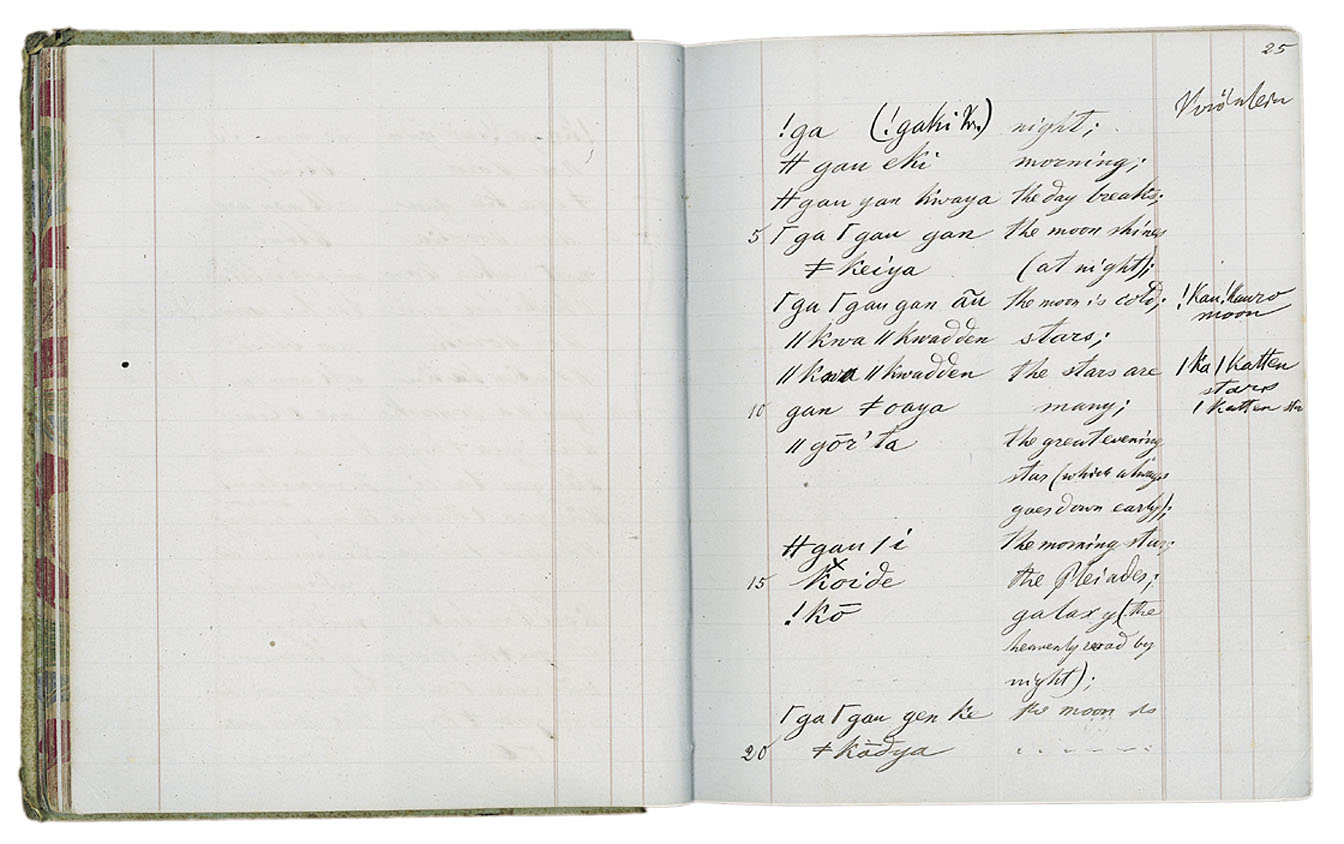 25
!ga (!gaki Kr.) night; Krönlein
⧺ gau eki morning;
⧺ gau gan kwaya the day breaks;
5 Γ ga Γ gau gan the moon shines
≠ keiya (at night);
Γ ga Γ gau gan ãu the moon is cold; !Kau!kauro
moon
// kwa // kwadden stars;
// kwa // kwadden the stars are /ka/katten
stars
10 gan ≠ oaya many; / katten
// gōr'ta the great evening
star (which always
goes down early);
⧺ gau / i the morning star;
15 koide the Pleiades;
!kō galaxy (the
heavenly road by
night);
Γ ga Γ gau gen ke the moon is
20 ≠ kōdya . . . . . .